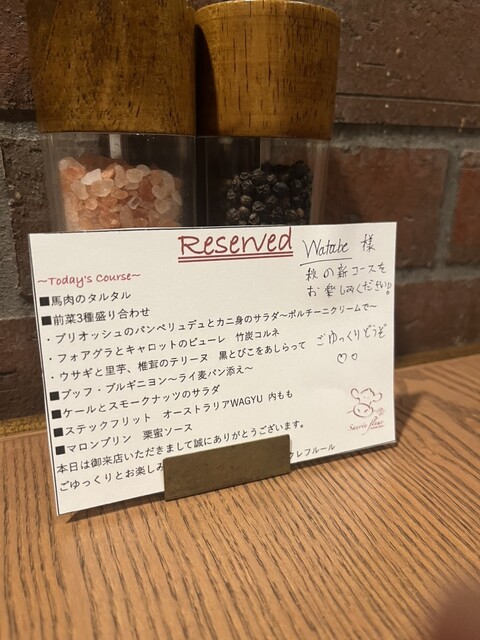 Reserved
Watabe 様
秋の新コースを
お楽しみください!!
ごゆっくりどうぞ
♡♡
~Today's Course~
■馬肉のタルタル
■前菜3種盛り合わせ
・ブリオッシュのパンペリュデュとカニ身のサラダ~ポルチーニクリームで~
・フォアグラとキャロットのピューレ 竹炭コルネ
・ウサギと里芋、椎茸のテリーヌ 黒とびこをあしらって
■ブッフ・ブルギニヨン~ライ麦パン添え~
■ケールとスモークナッツのサラダ
■ステックフリット オーストラリアWAGYU 内もも
■マロンプリン 栗蜜ソース
本日は御来店いただきまして誠にありがとうございます。
ごゆっくりとお楽しみ
クレフルール
fleur